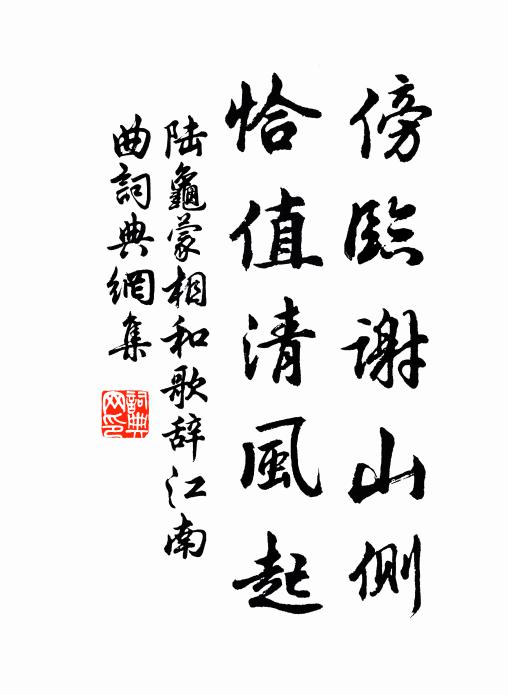 傍臨謝山側
恰值清風起
陆龜蒙相和歌辞江南
曲詞典網集
詞典网印